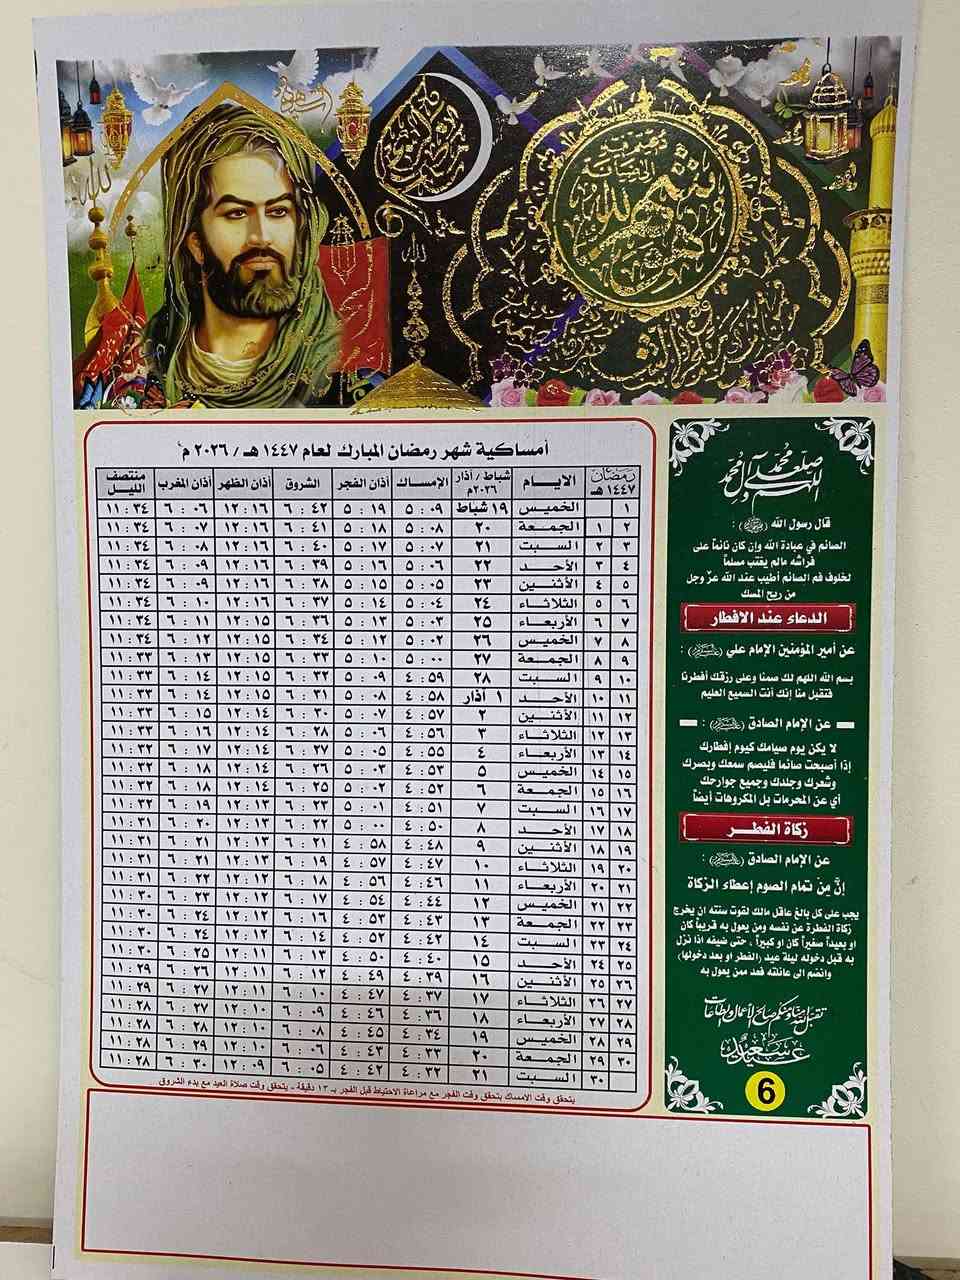 أمساكية شهر رمضان المبارك لعام ١٤٤٧ هـ / ٢٠٢٦ م
رمضان ١٤٤٧ هـ الايـــام شباط / آذار ٢٠٢٦م الإمساك أذان الفجر الشروق أذان الظهر أذان المغرب منتصف الليل
١ الخميس ١٩ شباط ٥ : ٠٩ ٥ : ١٩ ٦ : ٤٢ ١٢ : ١٦ ٦ : ٠٦ ١١ : ٣٤
٢ ١ الجمعة ٢٠ ٥ : ٠٨ ٥ : ١٨ ٦ : ٤١ ١٢ : ١٦ ٦ : ٠٧ ١١ : ٣٤
٣ ٢ السبت ٢١ ٥ : ٠٧ ٥ : ١٧ ٦ : ٤٠ ١٢ : ١٦ ٦ : ٠٨ ١١ : ٣٤
٤ ٣ الأحد ٢٢ ٥ : ٠٦ ٥ : ١٦ ٦ : ٣٩ ١٢ : ١٦ ٦ : ٠٩ ١١ : ٣٤
٥ ٤ الأثنين ٢٣ ٥ : ٠٥ ٥ : ١٥ ٦ : ٣٨ ١٢ : ١٦ ٦ : ٠٩ ١١ : ٣٤
٦ ٥ الثلاثاء ٢٤ ٥ : ٠٤ ٥ : ١٤ ٦ : ٣٧ ١٢ : ١٦ ٦ : ١٠ ١١ : ٣٤
٧ ٦ الأربعاء ٢٥ ٥ : ٠٣ ٥ : ١٣ ٦ : ٣٦ ١٢ : ١٥ ٦ : ١١ ١١ : ٣٤
٨ ٧ الخميس ٢٦ ٥ : ٠٢ ٥ : ١٢ ٦ : ٣٤ ١٢ : ١٥ ٦ : ١٢ ١١ : ٣٤
٩ ٨ الجمعة ٢٧ ٥ : ٠٠ ٥ : ١٠ ٦ : ٣٣ ١٢ : ١٥ ٦ : ١٣ ١١ : ٣٣
١٠ ٩ السبت ٢٨ ٤ : ٥٩ ٥ : ٠٩ ٦ : ٣٢ ١٢ : ١٥ ٦ : ١٤ ١١ : ٣٣
١١ ١٠ الأحد ١ آذار ٤ : ٥٨ ٥ : ٠٨ ٦ : ٣١ ١٢ : ١٥ ٦ : ١٤ ١١ : ٣٣
١٢ ١١ الأثنين ٢ ٤ : ٥٧ ٥ : ٠٧ ٦ : ٣٠ ١٢ : ١٤ ٦ : ١٥ ١١ : ٣٣
١٣ ١٢ الثلاثاء ٣ ٤ : ٥٦ ٥ : ٠٦ ٦ : ٢٨ ١٢ : ١٤ ٦ : ١٦ ١١ : ٣٣
١٤ ١٣ الأربعاء ٤ ٤ : ٥٥ ٥ : ٠٥ ٦ : ٢٧ ١٢ : ١٤ ٦ : ١٧ ١١ : ٣٢
١٥ ١٤ الخميس ٥ ٤ : ٥٣ ٥ : ٠٣ ٦ : ٢٦ ١٢ : ١٤ ٦ : ١٨ ١١ : ٣٢
١٦ ١٥ الجمعة ٦ ٤ : ٥٢ ٥ : ٠٢ ٦ : ٢٥ ١٢ : ١٤ ٦ : ١٨ ١١ : ٣٢
١٧ ١٦ السبت ٧ ٤ : ٥١ ٥ : ٠١ ٦ : ٢٣ ١٢ : ١٣ ٦ : ١٩ ١١ : ٣٢
١٨ ١٧ الأحد ٨ ٤ : ٥٠ ٥ : ٠٠ ٦ : ٢٢ ١٢ : ١٣ ٦ : ٢٠ ١١ : ٣١
١٩ ١٨ الأثنين ٩ ٤ : ٤٨ ٤ : ٥٨ ٦ : ٢١ ١٢ : ١٣ ٦ : ٢١ ١١ : ٣١
٢٠ ١٩ الثلاثاء ١٠ ٤ : ٤٧ ٤ : ٥٧ ٦ : ١٩ ١٢ : ١٣ ٦ : ٢١ ١١ : ٣١
٢١ ٢٠ الأربعاء ١١ ٤ : ٤٦ ٤ : ٥٦ ٦ : ١٨ ١٢ : ١٢ ٦ : ٢٢ ١١ : ٣١
٢٢ ٢١ الخميس ١٢ ٤ : ٤٤ ٤ : ٥٤ ٦ : ١٧ ١٢ : ١٢ ٦ : ٢٣ ١١ : ٣٠
٢٣ ٢٢ الجمعة ١٣ ٤ : ٤٣ ٤ : ٥٣ ٦ : ١٦ ١٢ : ١٢ ٦ : ٢٤ ١١ : ٣٠
٢٤ ٢٣ السبت ١٤ ٤ : ٤٢ ٤ : ٥٢ ٦ : ١٤ ١٢ : ١٢ ٦ : ٢٤ ١١ : ٣٠
٢٥ ٢٤ الأحد ١٥ ٤ : ٤٠ ٤ : ٥٠ ٦ : ١٣ ١٢ : ١١ ٦ : ٢٥ ١١ : ٣٠
٢٦ ٢٥ الأثنين ١٦ ٤ : ٣٩ ٤ : ٤٩ ٦ : ١٢ ١٢ : ١١ ٦ : ٢٦ ١١ : ٢٩
٢٧ ٢٦ الثلاثاء ١٧ ٤ : ٣٧ ٤ : ٤٧ ٦ : ١٠ ١٢ : ١١ ٦ : ٢٧ ١١ : ٢٩
٢٨ ٢٧ الأربعاء ١٨ ٤ : ٣٦ ٤ : ٤٦ ٦ : ٠٩ ١٢ : ١٠ ٦ : ٢٧ ١١ : ٢٨
٢٩ ٢٨ الخميس ١٩ ٤ : ٣٤ ٤ : ٤٥ ٦ : ٠٨ ١٢ : ١٠ ٦ : ٢٨ ١١ : ٢٨
٣٠ ٢٩ الجمعة ٢٠ ٤ : ٣٣ ٤ : ٤٣ ٦ : ٠٦ ١٢ : ١٠ ٦ : ٢٩ ١١ : ٢٨
٣٠ السبت ٢١ ٤ : ٣٢ ٤ : ٤٢ ٦ : ٠٥ ١٢ : ٠٩ ٦ : ٣٠ ١١ : ٢٨
يتحقق وقت الامساك بتحقق وقت الفجر مع مراعاة الاحتياط قبل الفجر بـ ١٣ دقيقة - يتحقق وقت صلاة العيد مع بدء الشروق
اللهم صل على محمد وآل محمد
قال رسول الله (ﷺ) :
الصائم في عبادة الله وإن كان نائماً على
فراشه مالم يغتب مسلماً
لخلوف فم الصائم أطيب عند الله عزّ وجل
من ريح المسك
الدعاء عند الافطار
عن أمير المؤمنين الإمام علي (عليه السلام) :
بسم الله اللهم لك صمنا وعلى رزقك أفطرنا
فتقبل منا إنك أنت السميع العليم
عن الإمام الصادق (عليه السلام) :
لا يكن يوم صيامك كيوم إفطارك
إذا أصبحت صائما فليصم سمعك وبصرك
وشعرك وجلدك وجميع جوارحك
أي عن المحرمات بل المكروهات أيضاً
زكاة الفطـــر
عن الإمام الصادق (عليه السلام) :
إنَّ مِنْ تمام الصوم إعطاء الزكاة
يجب على كل بالغ عاقل مالك لقوت سنته ان يخرج
زكاة الفطرة عن نفسه ومن يعول به قريباً كان
او بعيداً صغيراً كان او كبيراً ، حتى ضيفه اذا نزل
به قبل دخوله ليلة عيد (الفطر او بعد دخولها)
وانضم الى عائلته فعد ممن يعول به
تقبل الله منا ومنكم صالح الأعمال والطاعات
عيد سعيد
6